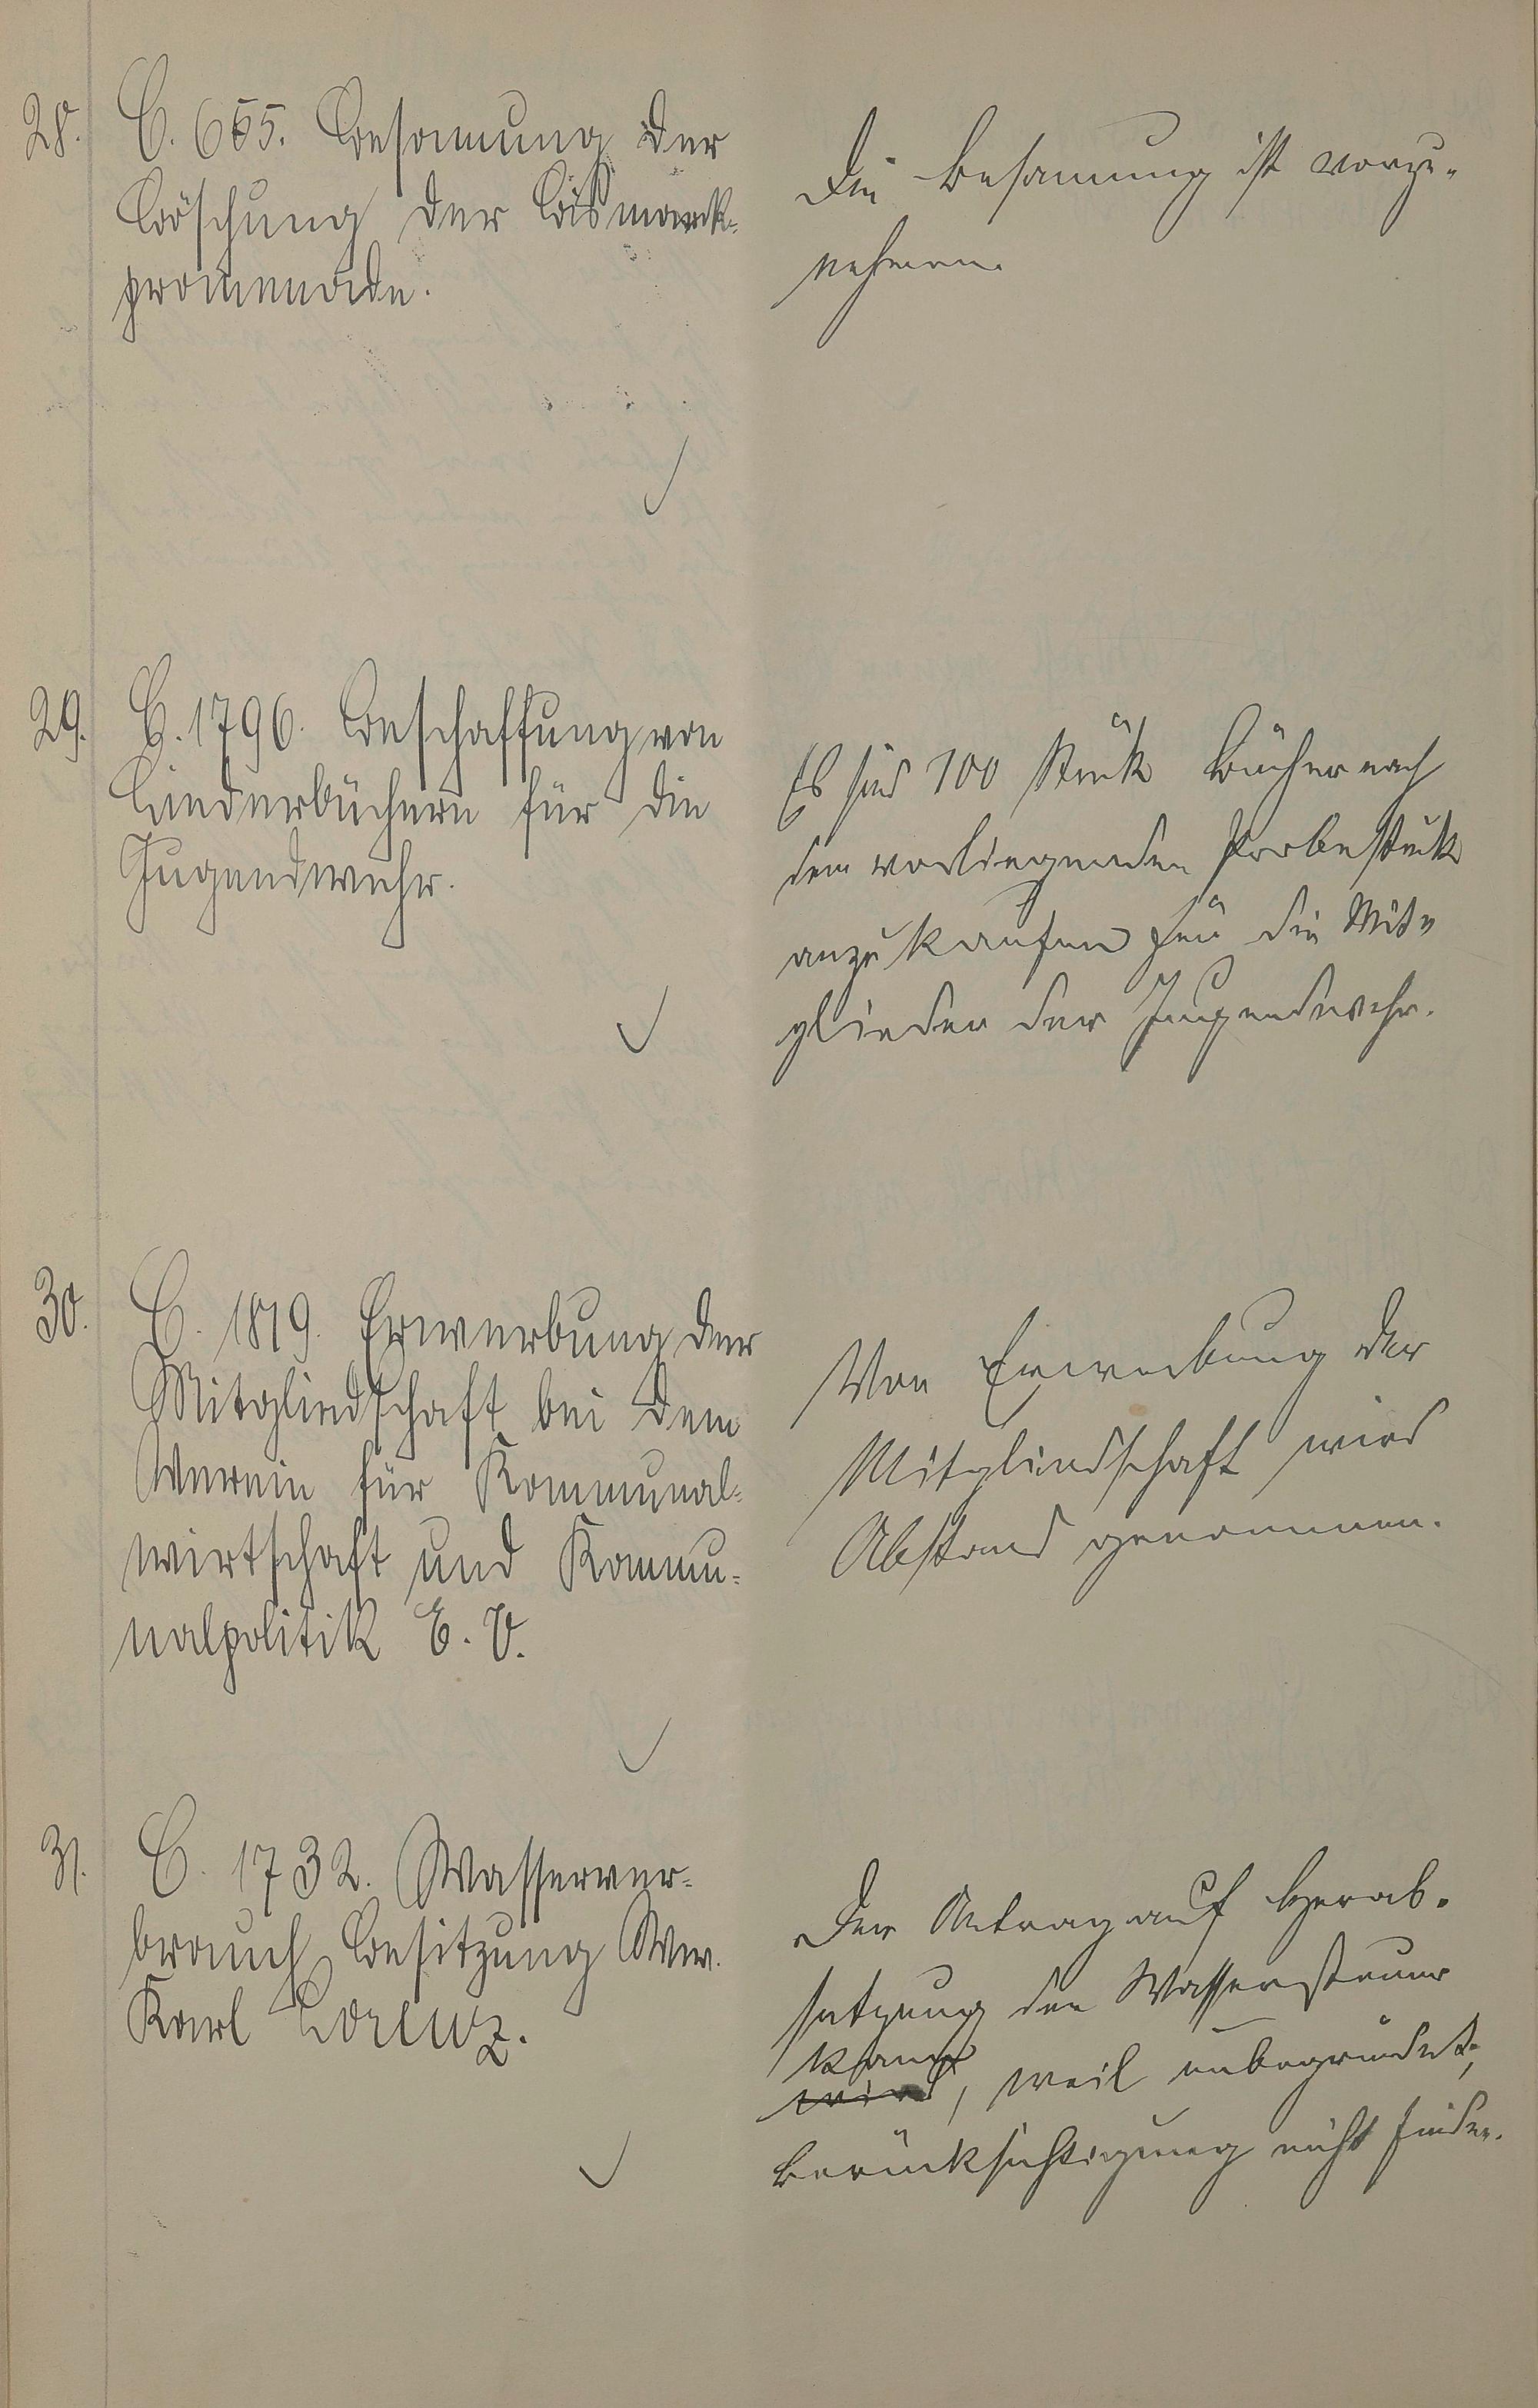 28.
B. 655. Besamung der
Böschung der Bismarck-
promenade.
Die Besamung ist vorzu-
nehmen.
29.
B. 1796. Beschaffung von
Liederbüchern für die
Jugendwehr.
Es sind 100 Stück Bücher nach
dem vorliegenden Probestück
anzukaufen für die Mit-
glieder der Jugendwehr.
30.
B. 1819. Erwerbung der
Mitgliedschaft bei dem
Verein für Kommunal-
wirtschaft und Kommu-
nalpolitik E. V.
Von Erwerbung der
Mitgliedschaft wird
Abstand genommen.
31.
B. 1732. Wasserver-
brauch Besitzung Ww.
Karl Lorenz.
Der Antrag auf Herab-
setzung der Wassersteuer
kann
wird, weil unbegründet,
Berücksichtigung nicht finden.